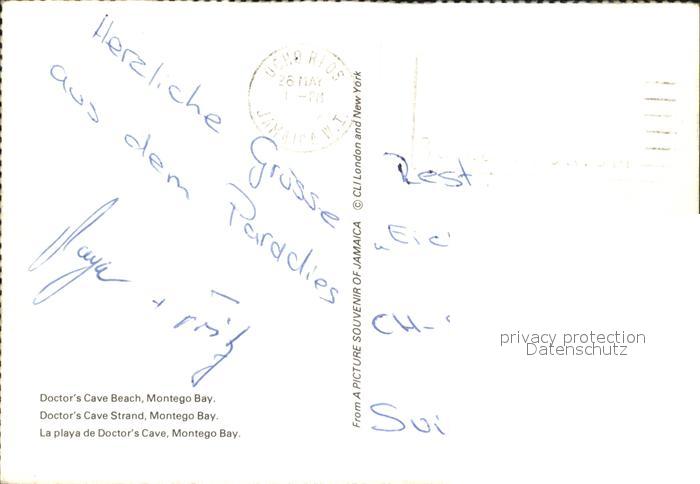 Herzliche Grüsse
aus dem Paradies
Maya + Fritz
OCHO RIOS
28 MAY
1 - PM
JAMAICA W.I.
Doctor's Cave Beach, Montego Bay.
Doctor's Cave Strand, Montego Bay.
La playa de Doctor's Cave, Montego Bay.
From A PICTURE SOUVENIR OF JAMAICA © CLI London and New York
Rest
„Eic
CH-
Sui
privacy protection
Datenschutz